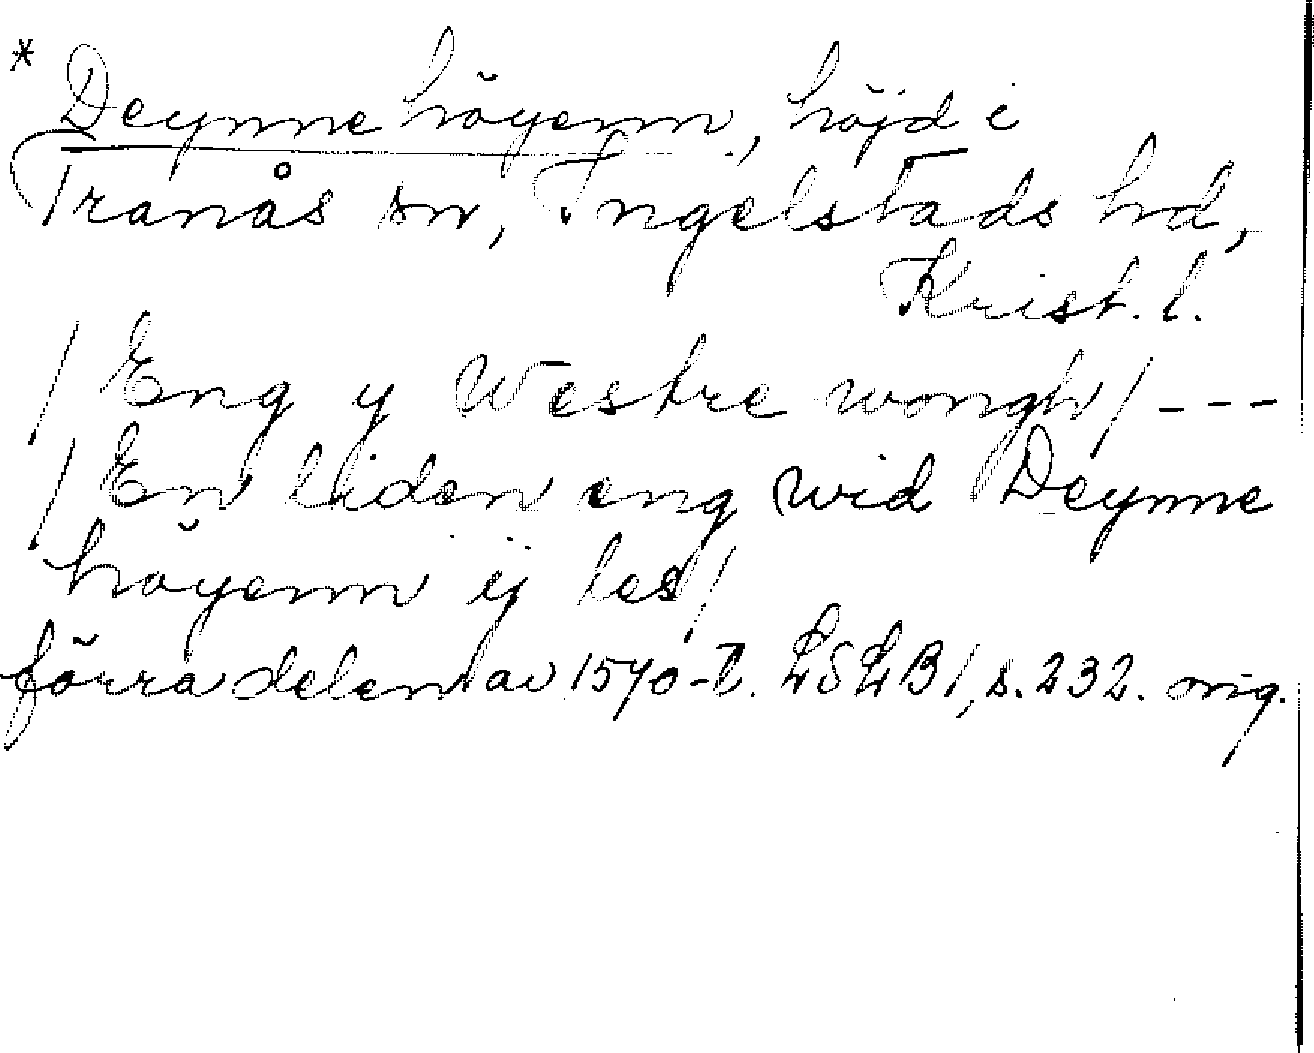 * Deynne höyenn, höjd i
Tranås sn, Ingelstads hd,
Krist. l.
/ Eng y Westre wongh / ---
/ En liden eng wid Deynne
höyenn ij les /
förra delen av 1570-t. LSLB 1, s. 232. orig.